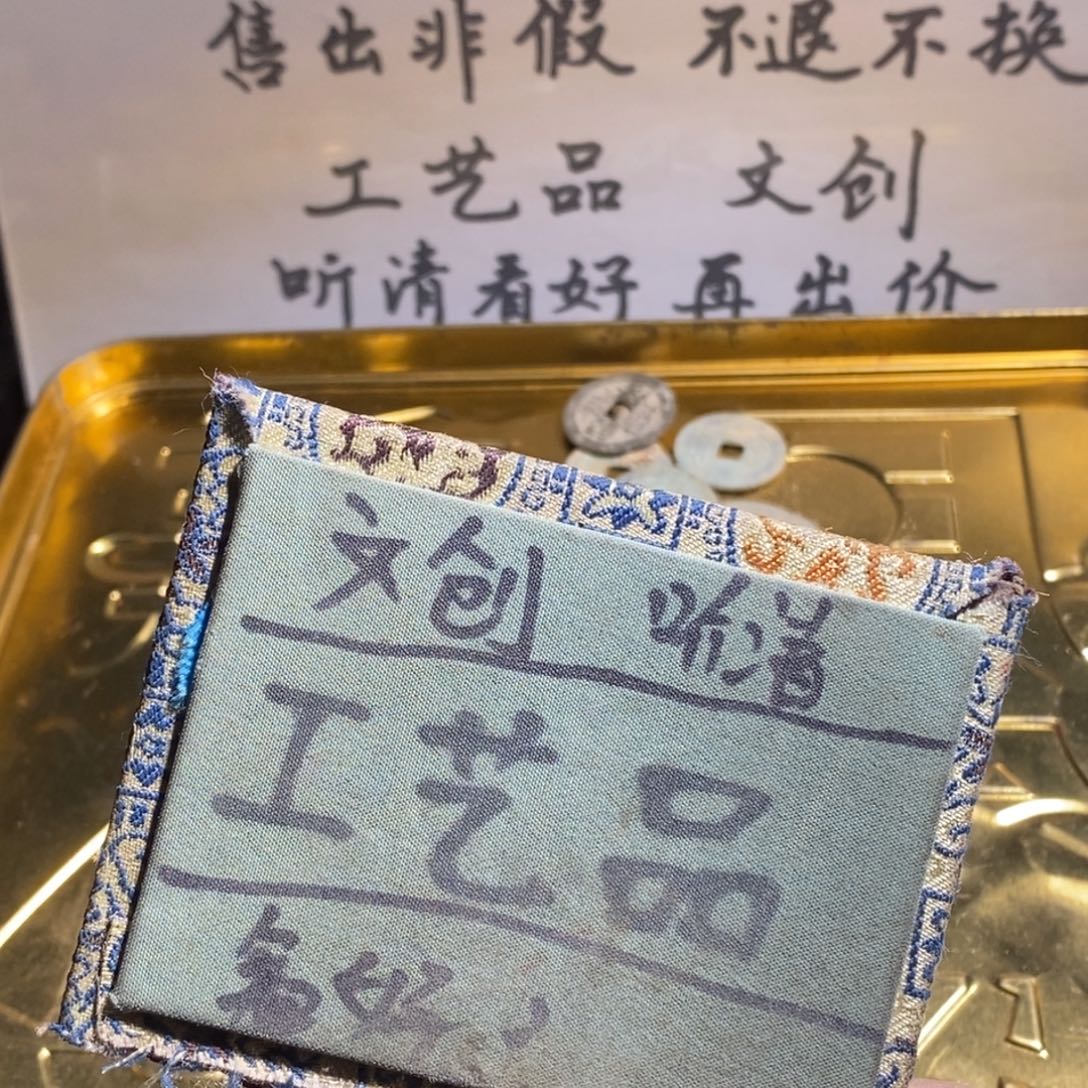 售出非假 不退不换
工艺品 文创
听清看好再出价
文创 听清
工艺品
看好